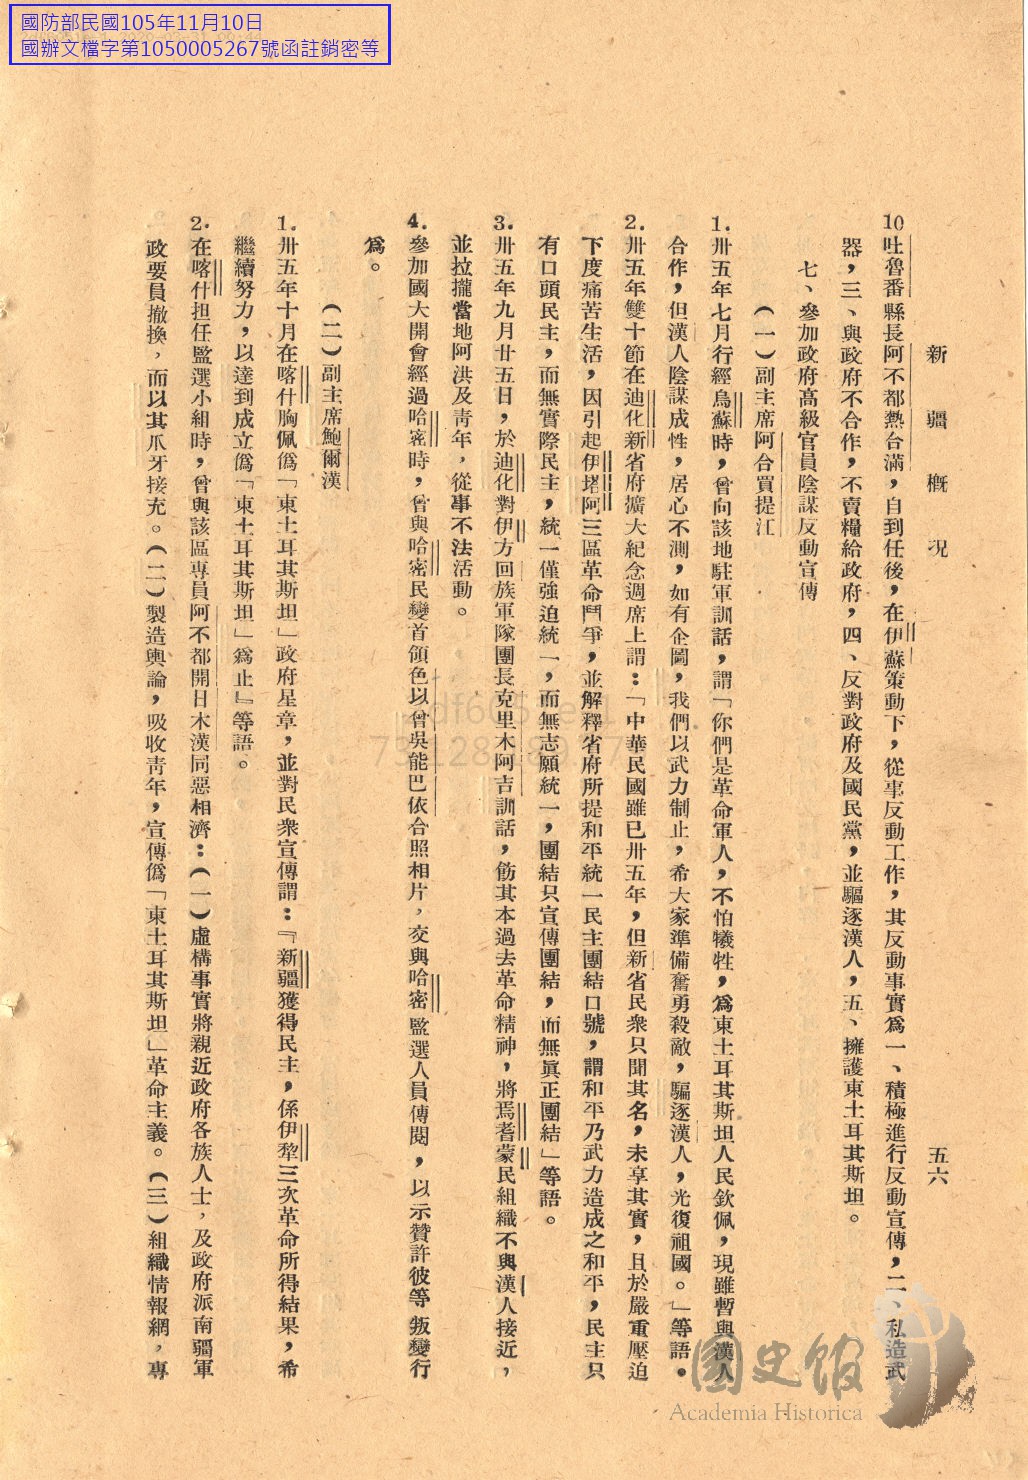 國防部民國105年11月10日
國辦文檔字第1050005267號函註銷密等
新疆概況　五六
10吐魯番縣長阿不都熱台滿，自到任後，在伊蘇策動下，從事反動工作，其反動事實為一、積極進行反動宣傳，二、私造武
器，三、與政府不合作，不賣糧給政府，四、反對政府及國民黨，並驅逐漢人，五、擁護東土耳其斯坦。
七、參加政府高級官員陰謀反動宣傳
(一)副主席阿合買提江
1.卅五年七月行經烏蘇時，曾向該地駐軍訓話，謂「你們是革命軍人，不怕犧牲，為東土耳其斯坦人民欽佩，現雖暫與漢人
合作，但漢人陰謀成性，居心不測，如有企圖，我們以武力制止，希大家準備奮勇殺敵，驅逐漢人，光復祖國。」等語。
2.卅五年雙十節在迪化新省府擴大紀念週席上謂：「中華民國雖已卅五年，但新省民衆只聞其名，未享其實，且於嚴重壓迫
下度痛苦生活，因引起伊塔阿三區革命鬥爭，並解釋省府所提和平統一民主團結口號，謂和平乃武力造成之和平，民主只
有口頭民主，而無實際民主，統一僅強迫統一，而無志願統一，團結只宣傳團結，而無眞正團結」等語。
3.卅五年九月廿五日，於迪化對伊方回族軍隊團長克里木阿吉訓話，飭其本過去革命精神，將焉耆蒙民組織不與漢人接近，
並拉攏當地阿洪及靑年，從事不法活動。
4.參加國大開會經過哈密時，曾與哈密民變首領色以曾吳能巴依合照相片，交與哈密監選人員傳閱，以示贊許彼等叛變行
為。
(二)副主席鮑爾漢
1.卅五年十月在喀什胸佩偽「東土耳其斯坦」政府星章，並對民衆宣傳謂：『新疆獲得民主，係伊犂三次革命所得結果，希
繼續努力，以達到成立偽「東土耳其斯坦」為止』等語。
2.在喀什担任監選小組時，曾與該區專員阿不都開日木漢同惡相濟：(一)虛構事實將親近政府各族人士，及政府派南疆軍
政要員撤換，而以其爪牙接充。(二)製造輿論，吸收靑年，宣傳偽「東土耳其斯坦」革命主義。(三)組織情報網，專
國史館
Academia Historica